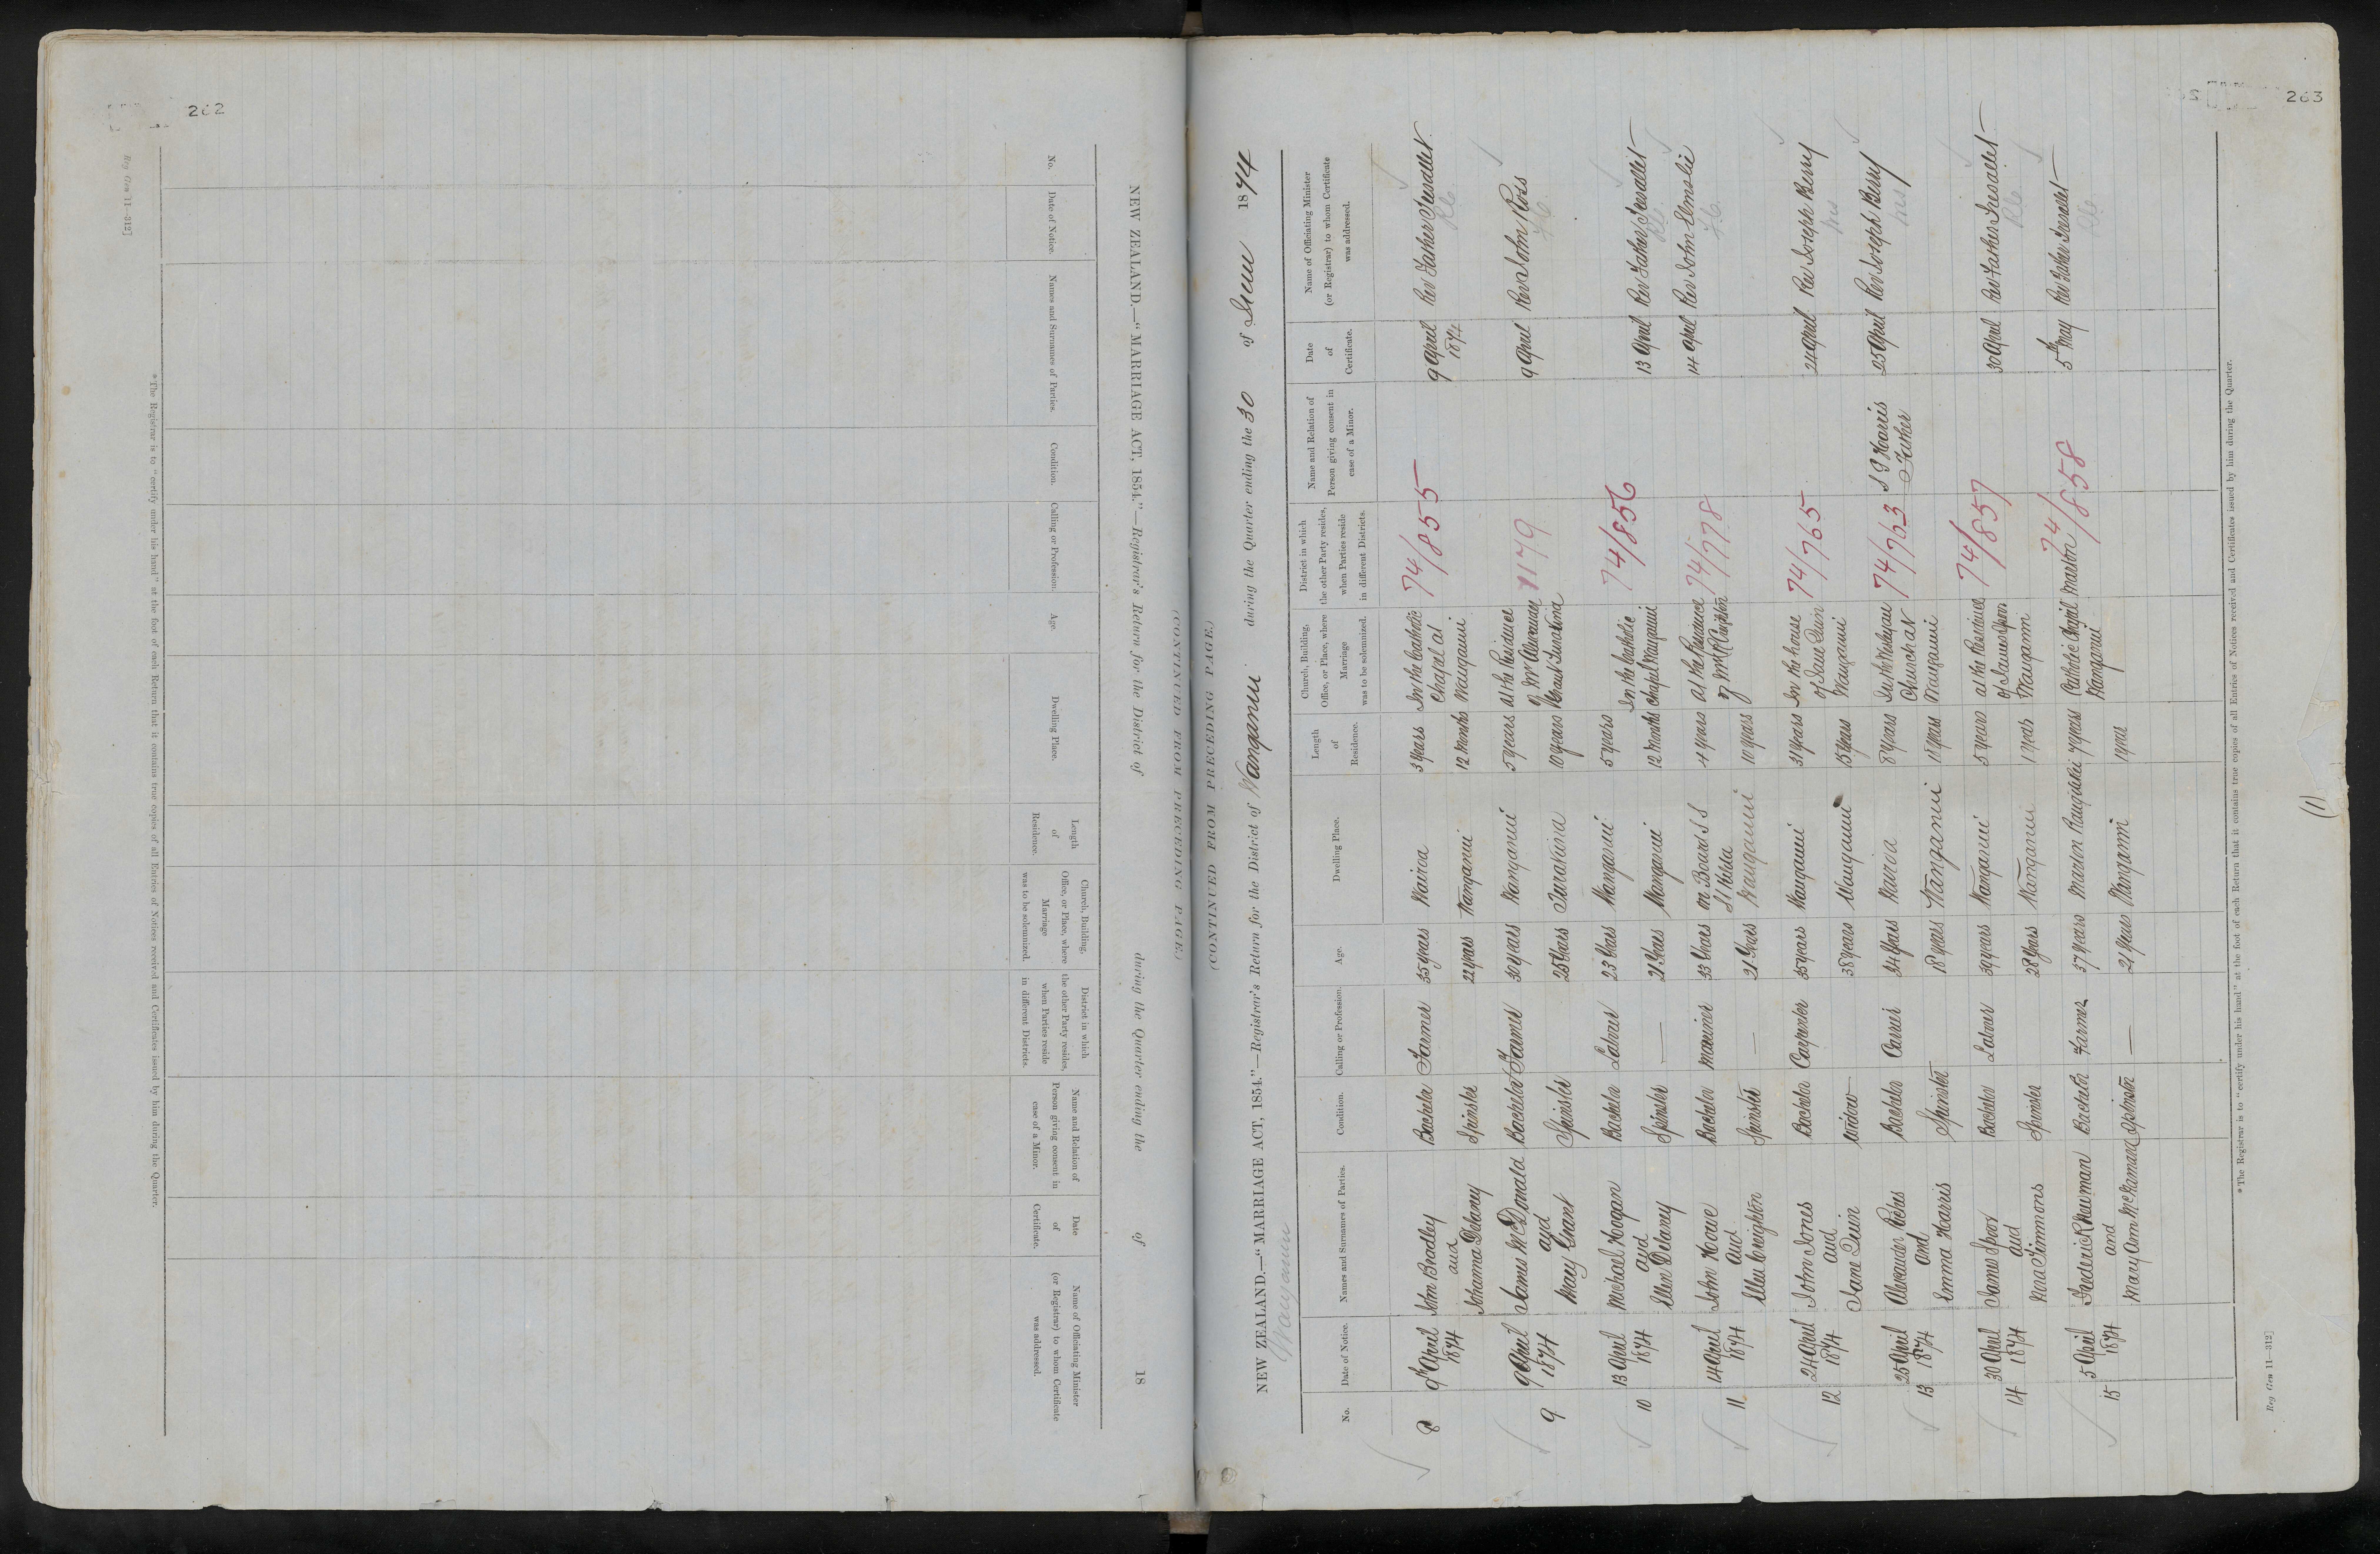 262
Reg Gen 11—312]
NEW ZEALAND.—"MARRIAGE ACT, 1854."—Registrar's Return for the District of during the Quarter ending the of 18
(CONTINUED FROM PRECEDING PAGE.)
No.
Date of Notice.
Names and Surnames of Parties.
Condition.
Calling or Profession.
Age.
Dwelling Place.
Length of Residence.
Church, Building, Office, or Place, where Marriage was to be solemnized.
District in which the other Party resides, when Parties reside in different Districts.
Name and Relation of Person giving consent in case of a Minor.
Date of Certificate.
Name of Officiating Minister (or Registrar) to whom Certificate was addressed.
*The Registrar is to "certify under his hand" at the foot of each Return that it contains true copies of all Entries of Notices received and Certificates issued by him during the Quarter.
263
(CONTINUED FROM PRECEDING PAGE.)
NEW ZEALAND.—"MARRIAGE ACT, 1854."—Registrar's Return for the District of Wanganui during the Quarter ending the 30 of June 1874
Wanganui
No.
Date of Notice.
Names and Surnames of Parties.
Condition.
Calling or Profession.
Age.
Dwelling Place.
Length of Residence.
Church, Building, Office, or Place, where Marriage was to be solemnized.
District in which the other Party resides, when Parties reside in different Districts.
Name and Relation of Person giving consent in case of a Minor.
Date of Certificate.
Name of Officiating Minister (or Registrar) to whom Certificate was addressed.
8 9th April John Bradley Bachelor Farmer 35 years Wairoa 3 years In the Catholic 74/855 9 April Rev Father
1874 and Chapel at 1874
Johanna Delaney Spinster 22 years Wanganui 12 months Wanganui
9 9 April James McDonald Bachelor Farmer 30 years Wanganui 5 years at the Residence 1179 9 April Rev John Ross
1874 and of Mr
Mary Grant Spinster 25 years 10 years
10 13 April Michael Hogan Bachelor Labourer 23 years Wanganui 5 years In the Catholic 74/856 13 April Rev Father
1874 and
Ellen Delaney Spinster — 21 years Wanganui 12 months Chapel Wanganui
11 14 April John Howe Bachelor Mariner 33 years on Board S S 4 years at the Residence 74/778 14 April Rev John Elmslie
1874 and St Kilda of Mr R Creighton
Ellen Creighton Spinster — 21 years Wanganui 10 years
12 24 April John Jones Bachelor Carpenter 35 years Wanganui 31 years In the house 74/765 24 April Rev Joseph Berry
1874 and of Jane Quin
Jane Quin Widow 38 years Wanganui 15 years Wanganui
13 25 April Alexander Bachelor Carrier 34 years Wairoa 8 years In the Wesleyan 74/763 S G Harris 25 April Rev Joseph Berry
1874 and Church at Father
Emma Harris Spinster 18 years Wanganui 18 years Wanganui
14 30 April James Bachelor Labourer 39 years Wanganui 5 years at the Residence 74/857 30 April Rev Father
1874 and of James
Timmons Spinster 28 years Wanganui 1 year Wanganui
15 5 April Frederick Newman Bachelor Farmer 37 years Marton 7 years Catholic Chapel Marton 74/858 5th May Rev Father
1874 and Wanganui
Mary Ann McNamara Spinster — 21 years Wanganui 1 year
*The Registrar is to "certify under his hand" at the foot of each Return that it contains true copies of all Entries of Notices received and Certificates issued by him during the Quarter.
Reg Gen 11—312]
(1)